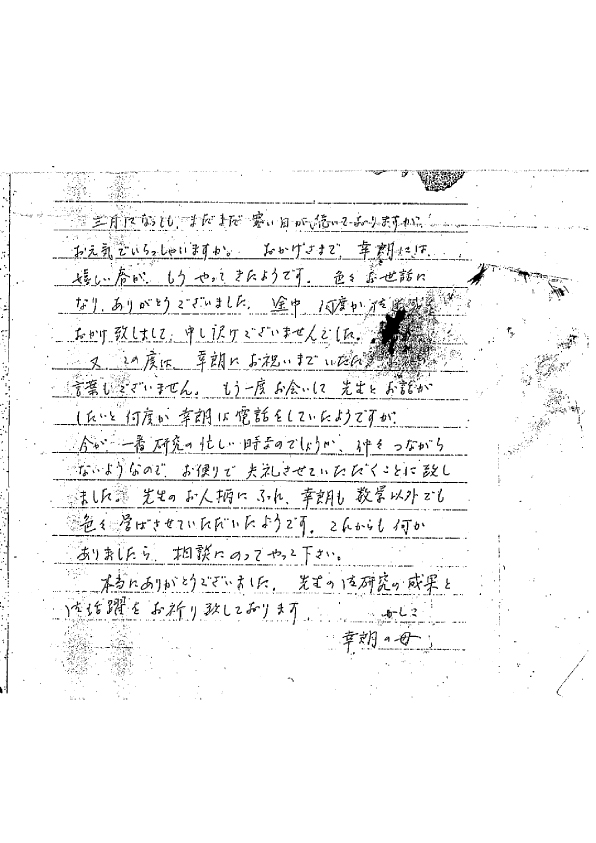 三月になっても、まだまだ寒い日が続いておりますが、
お元気でいらっしゃいますか。 おかげさまで、幸朗には
嬉しい春が、もうやってきたようです。 色々お世話に
なり、ありがとうございました。 途中、何度か
おかけ致しまして、申し訳けございませんでした。
又、この度は、幸朗にお祝いまでいただ
言葉もございません。 もう一度お会いして 先生とお話が
したいと何度か幸朗は電話をしていたようですが、
今が、一番研究の忙しい時なのでしょうか、仲々つながら
ないようなので、お便りで失礼させていただくことに致し
ました。 先生のお人柄にふれ、幸朗も数学以外でも
色々学ばさせていただいたようです。これからも何か
ありましたら、相談にのってやって下さい。
本当にありがとうございました。 先生の御研究の成果と
御活躍をお祈り致しております。 かしこ
幸朗の母